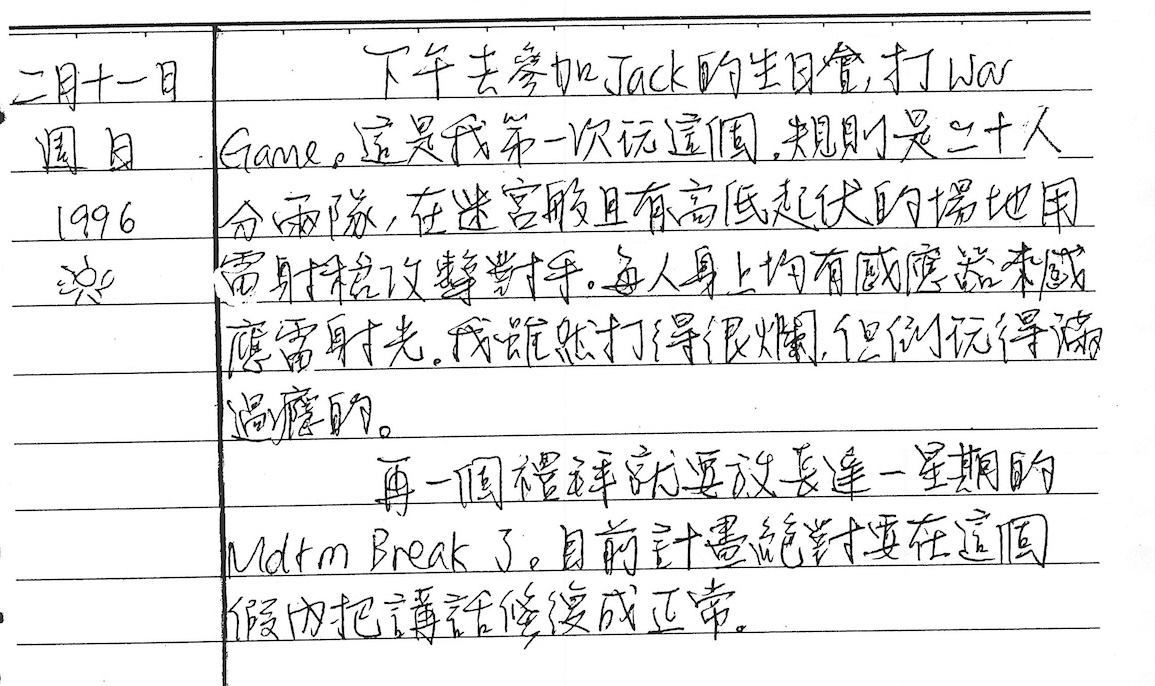 二月十一日
周日
1996
下午去參加Jack的生日會,打War
Game。這是我第一次玩這個,規則是二十人
分兩隊,在迷宮般且有高低起伏的場地用
雷射槍攻擊對手。每人身上均有感應器來感
應雷射光。我雖然打得很爛,但倒玩得滿
過癮的。
再一個禮拜就要放長達一星期的
Mdrm Break 了。目前計畫絕對要在這個
假內把講話修復成正常。